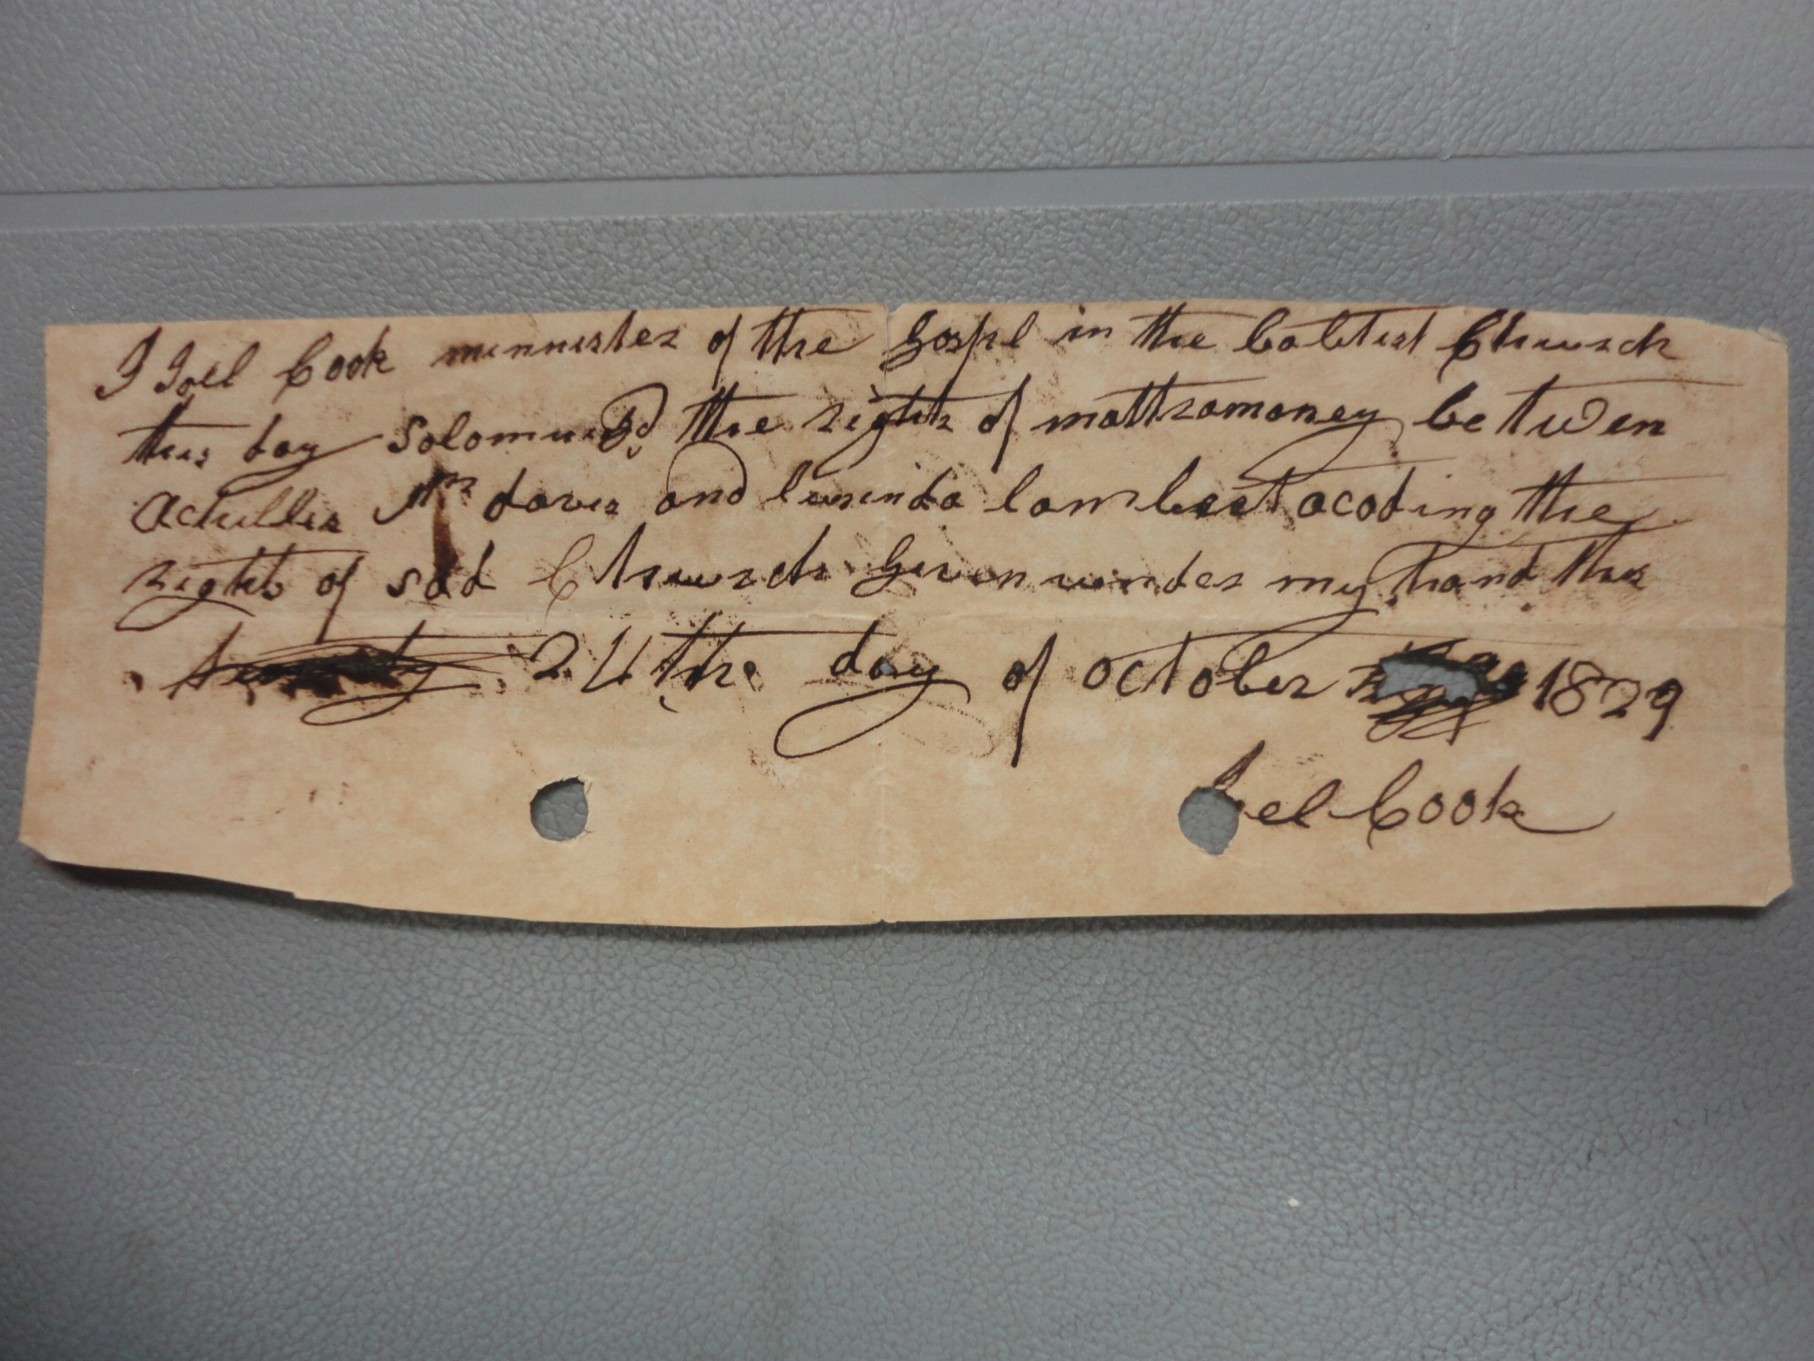 I Joel Cook minnister of the Gospl in the babtist Church
this day Solomnised the rights of mattramoney betwen
Achilles Mc daves and lusinda lambert acoding the
rights of sad Church Given under my hand this
24 the day of october 1829
Joel Cook